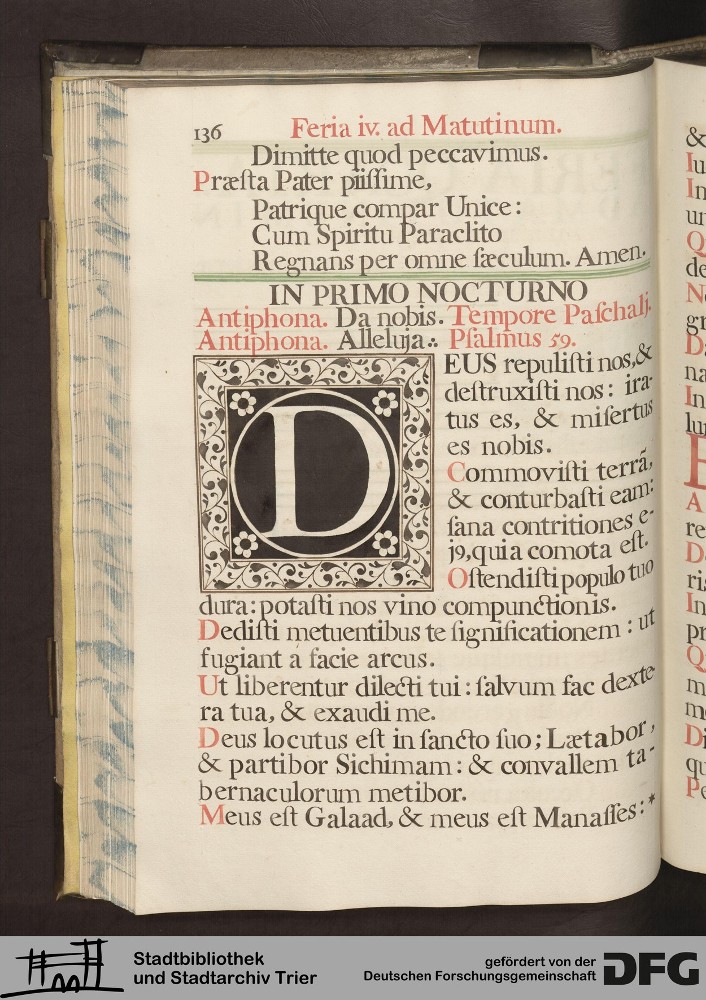 136 Feria iv. ad Matutinum.
Dimitte quod peccavimus.
Præſta Pater piiſſime,
Patrique compar Unice:
Cum Spiritu Paraclito
Regnans per omne ſæculum. Amen.
IN PRIMO NOCTURNO
Antiphona. Da nobis. Tempore Paſchali.
Antiphona. Alleluja ∴ Pſalmus 59.
DEUS repuliſti nos, &
deſtruxiſti nos: ira-
tus es, & miſertus
es nobis.
Commoviſti terrā,
& conturbaſti eam:
ſana contritiones e-
j9, quia comota eſt.
Oſtendiſti populo tuo
dura: potaſti nos vino compunctionis.
Dediſti metuentibus te ſignificationem: ut
fugiant á facie arcus.
Ut liberentur dilecti tui: ſalvum fac dexte-
ra tua, & exaudi me.
Deus locutus eſt in ſancto ſuo; Lætabor,
& partibor Sichimam: & convallem ta-
bernaculorum metibor.
Meus eſt Galaad, & meus eſt Manaſſes: *
Stadtbibliothek
und Stadtarchiv Trier
gefördert von der
Deutschen Forschungsgemeinschaft
DFG